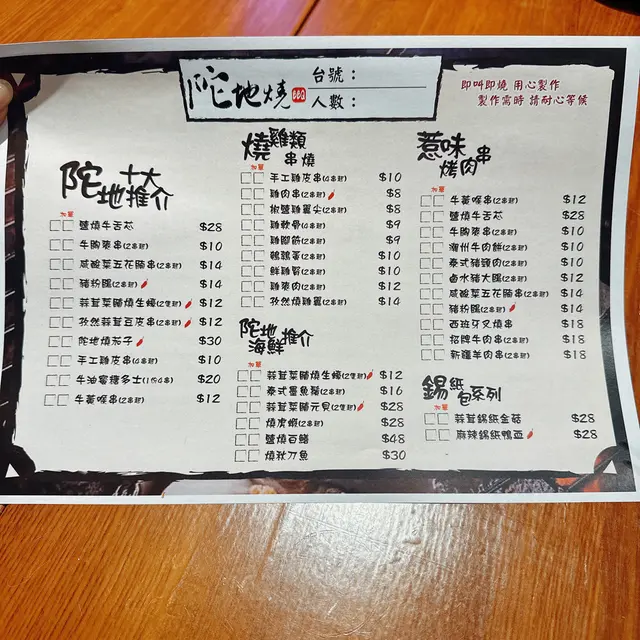 陀地燒 BBQ
台號：
人數：
即叫即燒 用心製作
製作需時 請耐心等候
陀地十大推介
加單
鹽燒牛舌芯 $28
牛胸夾串(2串起) $10
咸酸菜五花腩串(2串起) $14
豬粉腸(2串起) $14
蒜茸菜脯燒生蠔(2隻起) $12
孜然蒜茸豆皮串(2串起) $12
陀地燒茄子 $30
手工雞皮串(2串起) $10
牛油蜜糖多士(1份4串) $20
牛黃喉串(2串起) $12
燒雞類串燒
加單
手工雞皮串(2串起) $10
雞肉串(2串起) $8
椒鹽雞翼尖(2串起) $8
雞軟骨(2串起) $9
雞腳筋(2串起) $9
鵪鶉蛋(2串起) $10
鮮雞腎(2串起) $10
雞夾肉(2串起) $12
孜然燒雞翼(2串起) $14
陀地海鮮推介
加單
蒜茸菜脯燒生蠔(2隻起) $12
泰式墨魚鬚(2串起) $16
蒜茸菜脯元貝(2隻起) $28
燒虎蝦(2串起) $28
鹽燒白鱔 $48
燒秋刀魚 $30
惹味烤肉串
加單
牛黃喉串(2串起) $12
鹽燒牛舌芯 $28
牛胸夾串(2串起) $10
潮州牛肉餅(2串起) $10
泰式豬頸肉(2串起) $10
鹵水豬大腸(2串起) $12
咸酸菜五花腩串(2串起) $14
豬粉腸(2串起) $14
西班牙叉燒串 $18
招牌牛肉串(2串起) $18
新疆羊肉串(2串起) $18
錫紙包系列
加單
蒜茸錫紙金菇 $28
麻辣錫紙鴨血 $28